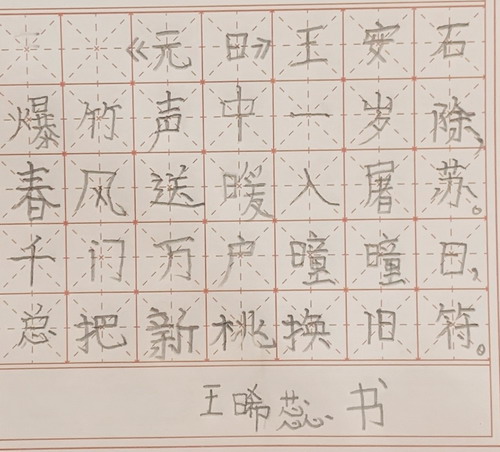 《元日》王安石
爆竹声中一岁除，
春风送暖入屠苏。
千门万户曈曈日，
总把新桃换旧符。
王晞蕊书